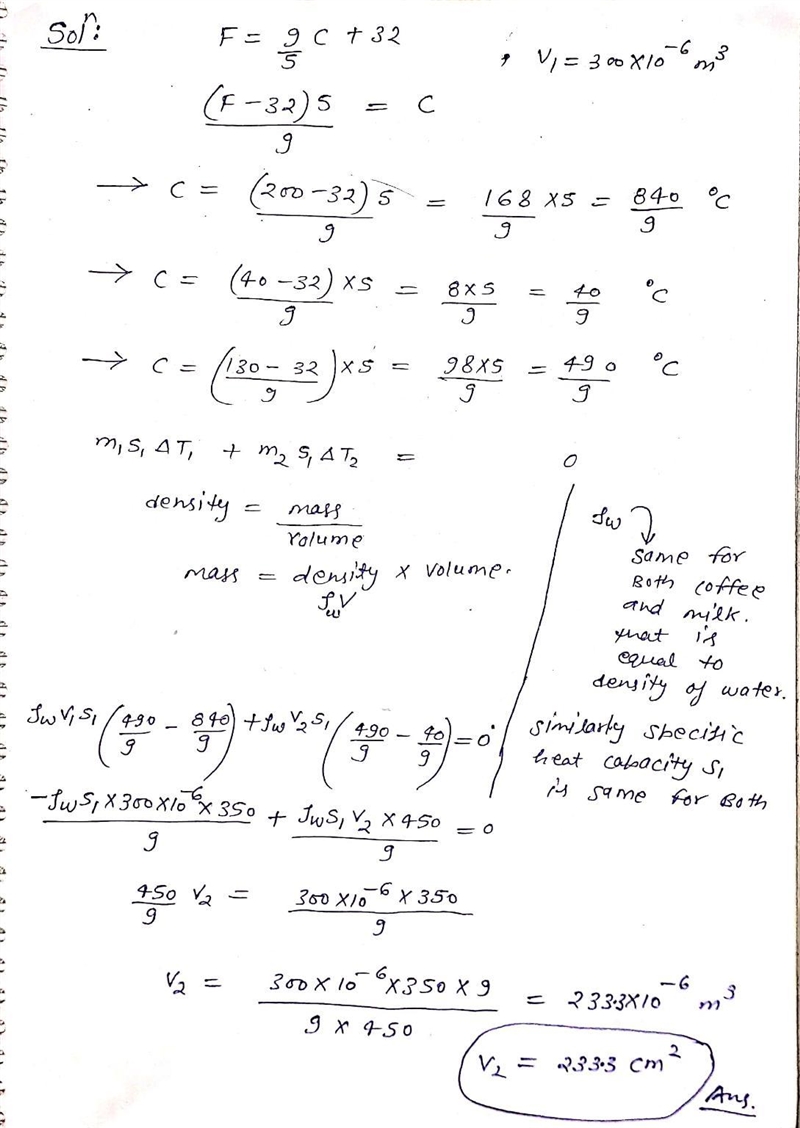 Solⁿ: F = 9/5 C + 32 , V₁ = 300 × 10⁻⁶ m³
(F - 32) 5 / 9 = C
→ C = (200 - 32) 5 / 9 = 168 × 5 / 9 = 840 / 9 °C
→ C = (40 - 32) × 5 / 9 = 8 × 5 / 9 = 40 / 9 °C
→ C = (130 - 32 / 9) × 5 = 98 × 5 / 9 = 490 / 9 °C
m₁ s₁ ΔT₁ + m₂ s₁ ΔT₂ = 0
density = mass / volume
mass = density × volume.
ρw V
ρw
same for
Both coffee
and milk.
that is
equal to
density of water.
similarly specific
heat capacity s₁
is same for Both
ρw V₁ s₁ (490/9 - 840/9) + ρw V₂ s₁ (490/9 - 40/9) = 0
- ρw s₁ × 300 × 10⁻⁶ × 350 / 9 + ρw s₁ V₂ × 450 / 9 = 0
450/9 V₂ = 300 × 10⁻⁶ × 350 / 9
V₂ = 300 × 10⁻⁶ × 350 × 9 / 9 × 450 = 233.3 × 10⁻⁶ m³
V₂ = 233.3 cm²
Ans.